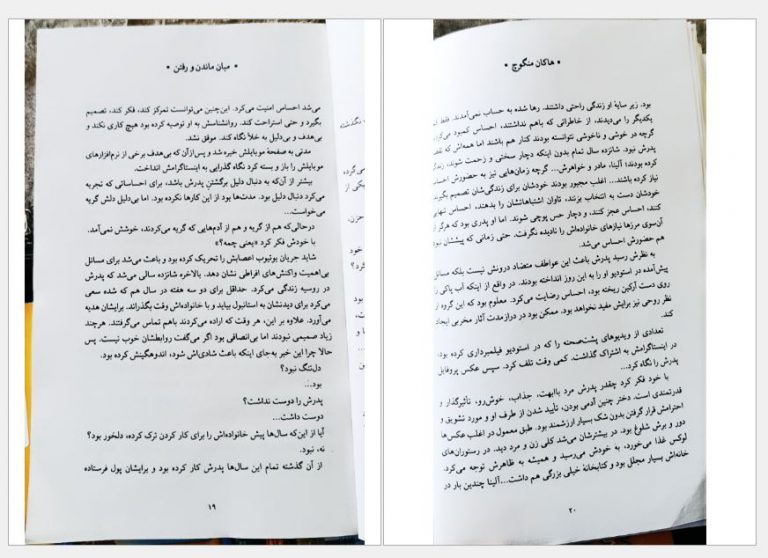 * میان ماندن و رفتن *
می‌شد احساس امنیت می‌کرد. این‌چنین می‌توانست تمرکز کند، فکر کند، تصمیم
بگیرد و حتی استراحت کند. روانشناسش به او توصیه کرده بود هیچ کاری نکند و
بی‌هدف و بی‌دلیل به خلأ نگاه کند. موفق نشد.
مدتی به صفحهٔ موبایلش خیره شد و پس‌ازآن‌که بی‌هدف برخی از نرم‌افزارهای
موبایلش را باز و بسته کرد نگاه گذرایی به اینستاگرامش انداخت.
بیشتر از آن‌که به دلیل برگشتن پدرش باشد، برای احساساتی که تجربه
می‌کرد دنبال دلیل بود. مدت‌ها بود از این کارها نکرده بود. اما بی‌دلیل دلش گریه
می‌خواست...
درحالی‌که هم از گریه و هم از آدم‌هایی که گریه می‌کردند، خوشش نمی‌آمد.
با خودش فکر کرد «یعنی چمه؟»
شاید جریان یوتیوب اعصابش را تحریک کرده بود و باعث می‌شد برای مسائل
بی‌اهمیت واکنش‌های افراطی نشان دهد. بالاخره شانزده سالی می‌شد که پدرش
در روسیه زندگی می‌کرد. حداقل برای دو سه هفته در سال هم که شده سعی
می‌کرد برای دیدنشان به استانبول بیاید و با خانواده‌اش وقت بگذراند. برایشان هدیه
می‌آورد. علاوه بر این، هر وقت که اراده می‌کردند باهم تماس می‌گرفتند. هرچند
زیاد صمیمی نبودند اما بی‌انصافی بود اگر می‌گفت روابطشان خوب نیست. پس
حالا چرا این خبر به‌جای اینکه باعث شادی‌اش شود، اندوهگینش کرده بود.
دل‌تنگ نبود؟
بود...
پدرش را دوست نداشت؟
دوست داشت...
آیا از این‌که سال‌ها پیش خانواده‌اش را برای کار کردن ترک کرده، دلخور بود؟
نه، نبود.
از آن گذشته تمام این سال‌ها پدرش کار کرده بود و برایشان پول فرستاده
۱۹
* هاکان منگوچ *
بود. زیر سایهٔ او زندگی راحتی داشتند. رها شده به حساب نمی‌آمدند. فقط
یکدیگر را می‌دیدند، از خاطراتی که باهم نداشتند، احساس کمبود می‌کرد
گرچه در خوشی و ناخوشی نتوانسته بودند کنار هم باشند اما همه‌اش که
پدرش نبود. شانزده سال تمام بدون اینکه دچار سختی و زحمت شوند، زندگی
کرده بودند؛ آلینا، مادر و خواهرش... گرچه زمان‌هایی نیز به حضورش
نیاز کرده باشند... اغلب مجبور بودند خودشان برای زندگی‌شان تصمیم بگیرند
خودشان دست به انتخاب بزنند، تاوان اشتباهاتشان را بدهند، احساس
کنند، احساس عجز کنند، و دچار حس پوچی شوند. اما او پدری بود که هرگز
آن‌سوی مرزها نیازهای خانواده‌اش را نادیده نگرفت. حتی زمانی که پیششان
هم حضورش احساس می‌شد.
به نظرش رسید پدرش باعث این عواطف متضاد درونش نیست بلکه مسائل
پیش‌آمده در استودیو او را به این روز انداخته بودند. در واقع از اینکه آب پاکی را
روی دست آرکین ریخته بود، احساس رضایت می‌کرد. معلوم بود که این گروه از
نظر روحی نیز برایش مفید نخواهد بود. ممکن بود در درازمدت آثار مخربی ایجاد
کند.
تعدادی از ویدیوهای پشت‌صحنه را که در استودیو فیلمبرداری کرده بود،
در اینستاگرامش به اشتراک گذاشت. کمی وقت تلف کرد. سپس عکس پروفایل
پدرش را نگاه کرد...
با خود فکر کرد چقدر پدرش مرد باابهت، جذاب، خوش‌رو، تأثیرگذار و
قدرتمندی است. دختر چنین آدمی بودن، تأیید شدن از طرف او و مورد تشویق و
احترامش قرار گرفتن بدون شک بسیار ارزشمند بود. طبق معمول در اغلب عکس‌ها
دور و برش شلوغ بود. در بیشترشان می‌شد کلی زن و مرد دید. در رستوران‌های
لوکس غذا می‌خورد، به خودش می‌رسید و همیشه به ظاهرش توجه می‌کرد.
خانه‌اش بسیار مجلل بود و کتابخانهٔ خیلی بزرگی هم داشت...آلینا چندین بار در
۲۰